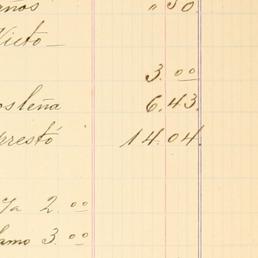 años " 50
Nieto —
3.00
osteña 6.43.
prestó 14.04.
2.00
lamo 3.00